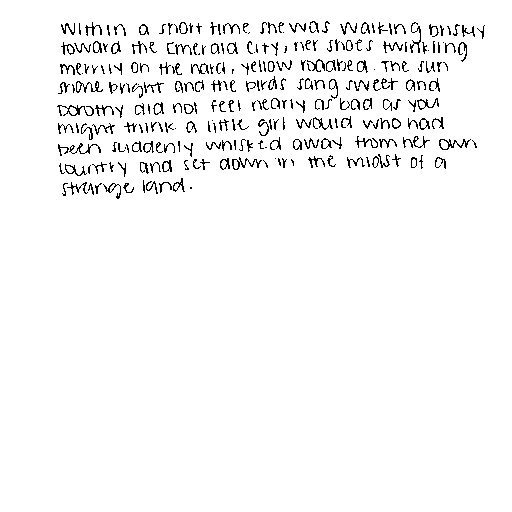 Within a short time she was walking briskly
toward the Emerald City, her shoes twinkling
merrily on the hard, yellow roadbed. The sun
shone bright and the birds sang sweet and
Dorothy did not feel nearly as bad as you
might think a little girl would who had
been suddenly whisked away from her own
country and set down in the midst of a
strange land.